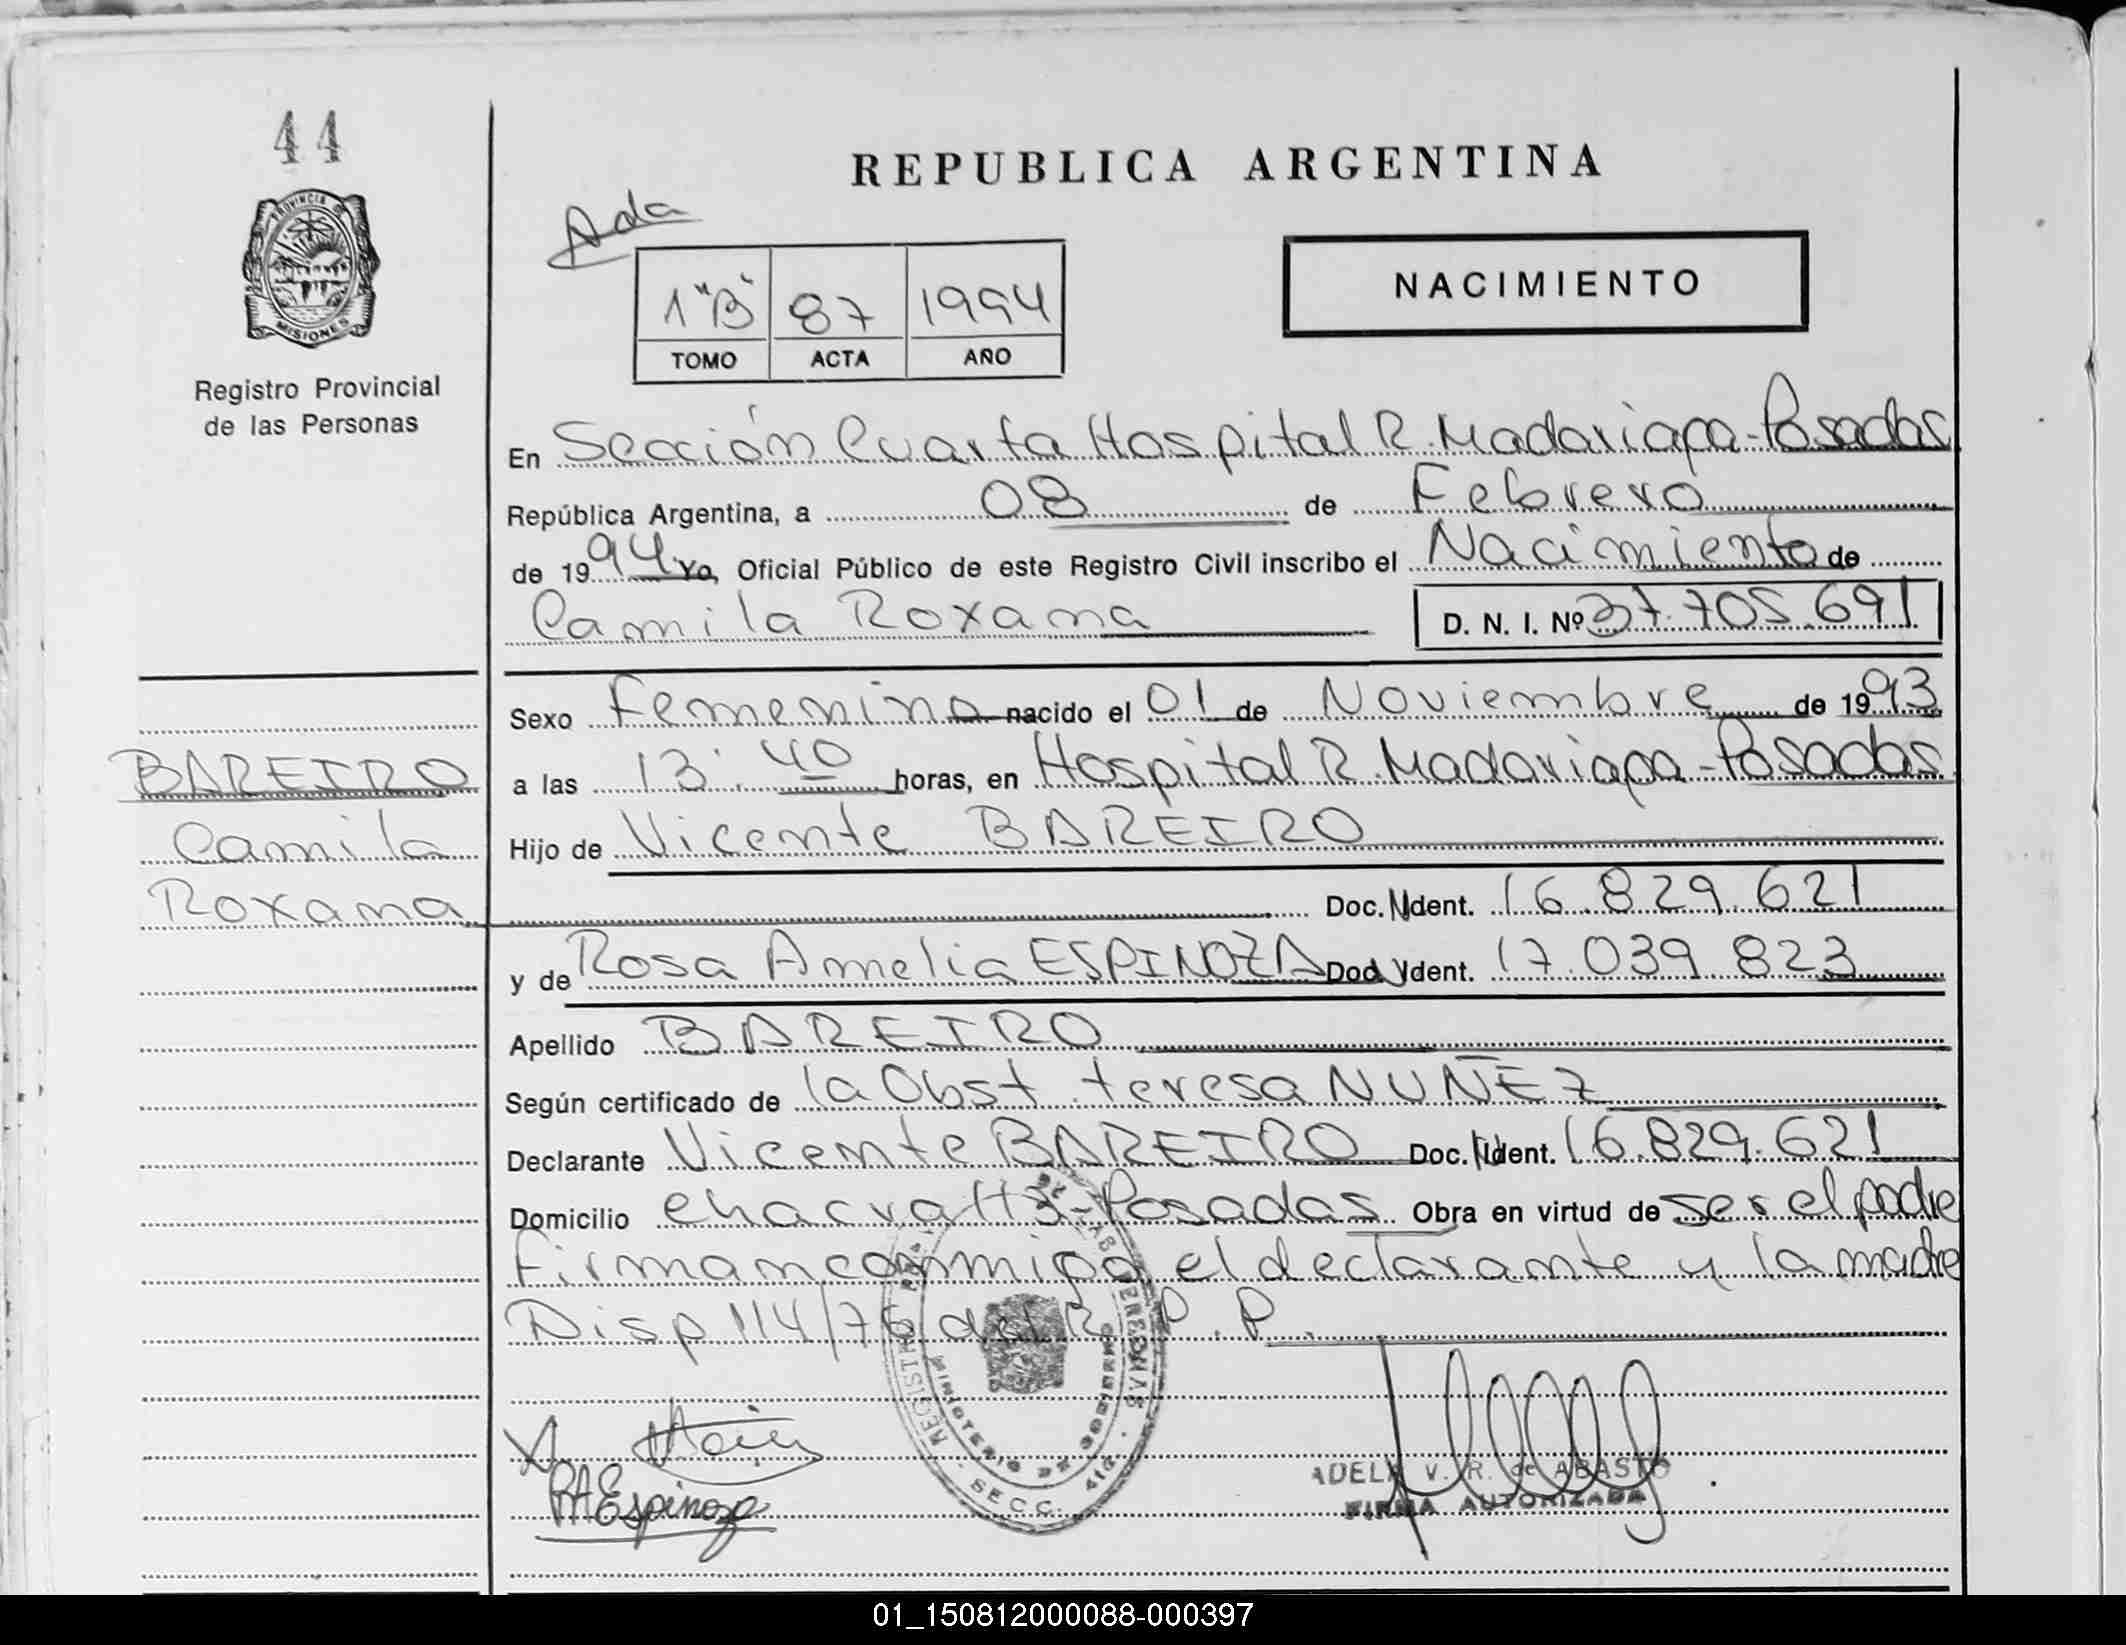 44
PROVINCIA DE
MISIONES
Registro Provincial
de las Personas
REPUBLICA ARGENTINA
Ada
1 "B" 87 1994
TOMO ACTA AÑO
NACIMIENTO
En Sección Cuarta Hospital R. Madariaga - Posadas
República Argentina, a 08 de Febrero
de 1994 Yo, Oficial Público de este Registro Civil inscribo el Nacimiento de
Camila Roxana D. N. I. Nº 37.705.691
Sexo Femenino nacido el 01 de Noviembre de 1993
a las 13:40 horas, en Hospital R. Madariaga - Posadas
Hijo de Vicente BAREIRO
Doc. Ident. 16.829.621
y de Rosa Amelia ESPINOZA Doc. Ident. 17.039.823
Apellido BAREIRO
Según certificado de la Obst. teresa NUÑEZ
Declarante Vicente BAREIRO Doc. Ident. 16.829.621
Domicilio chacra 113 - Posadas Obra en virtud de ser el padre
Firman conmigo el declarante y la madre
Disp 114/76 del R. P. P.
BAREIRO
Camila
Roxana
RAEspinoza
MINISTERIO DE GOBIERNO
SECC. 4ta.
ADELA V. R. de ABASTO
FIRMA AUTORIZADA
01_150812000088-000397